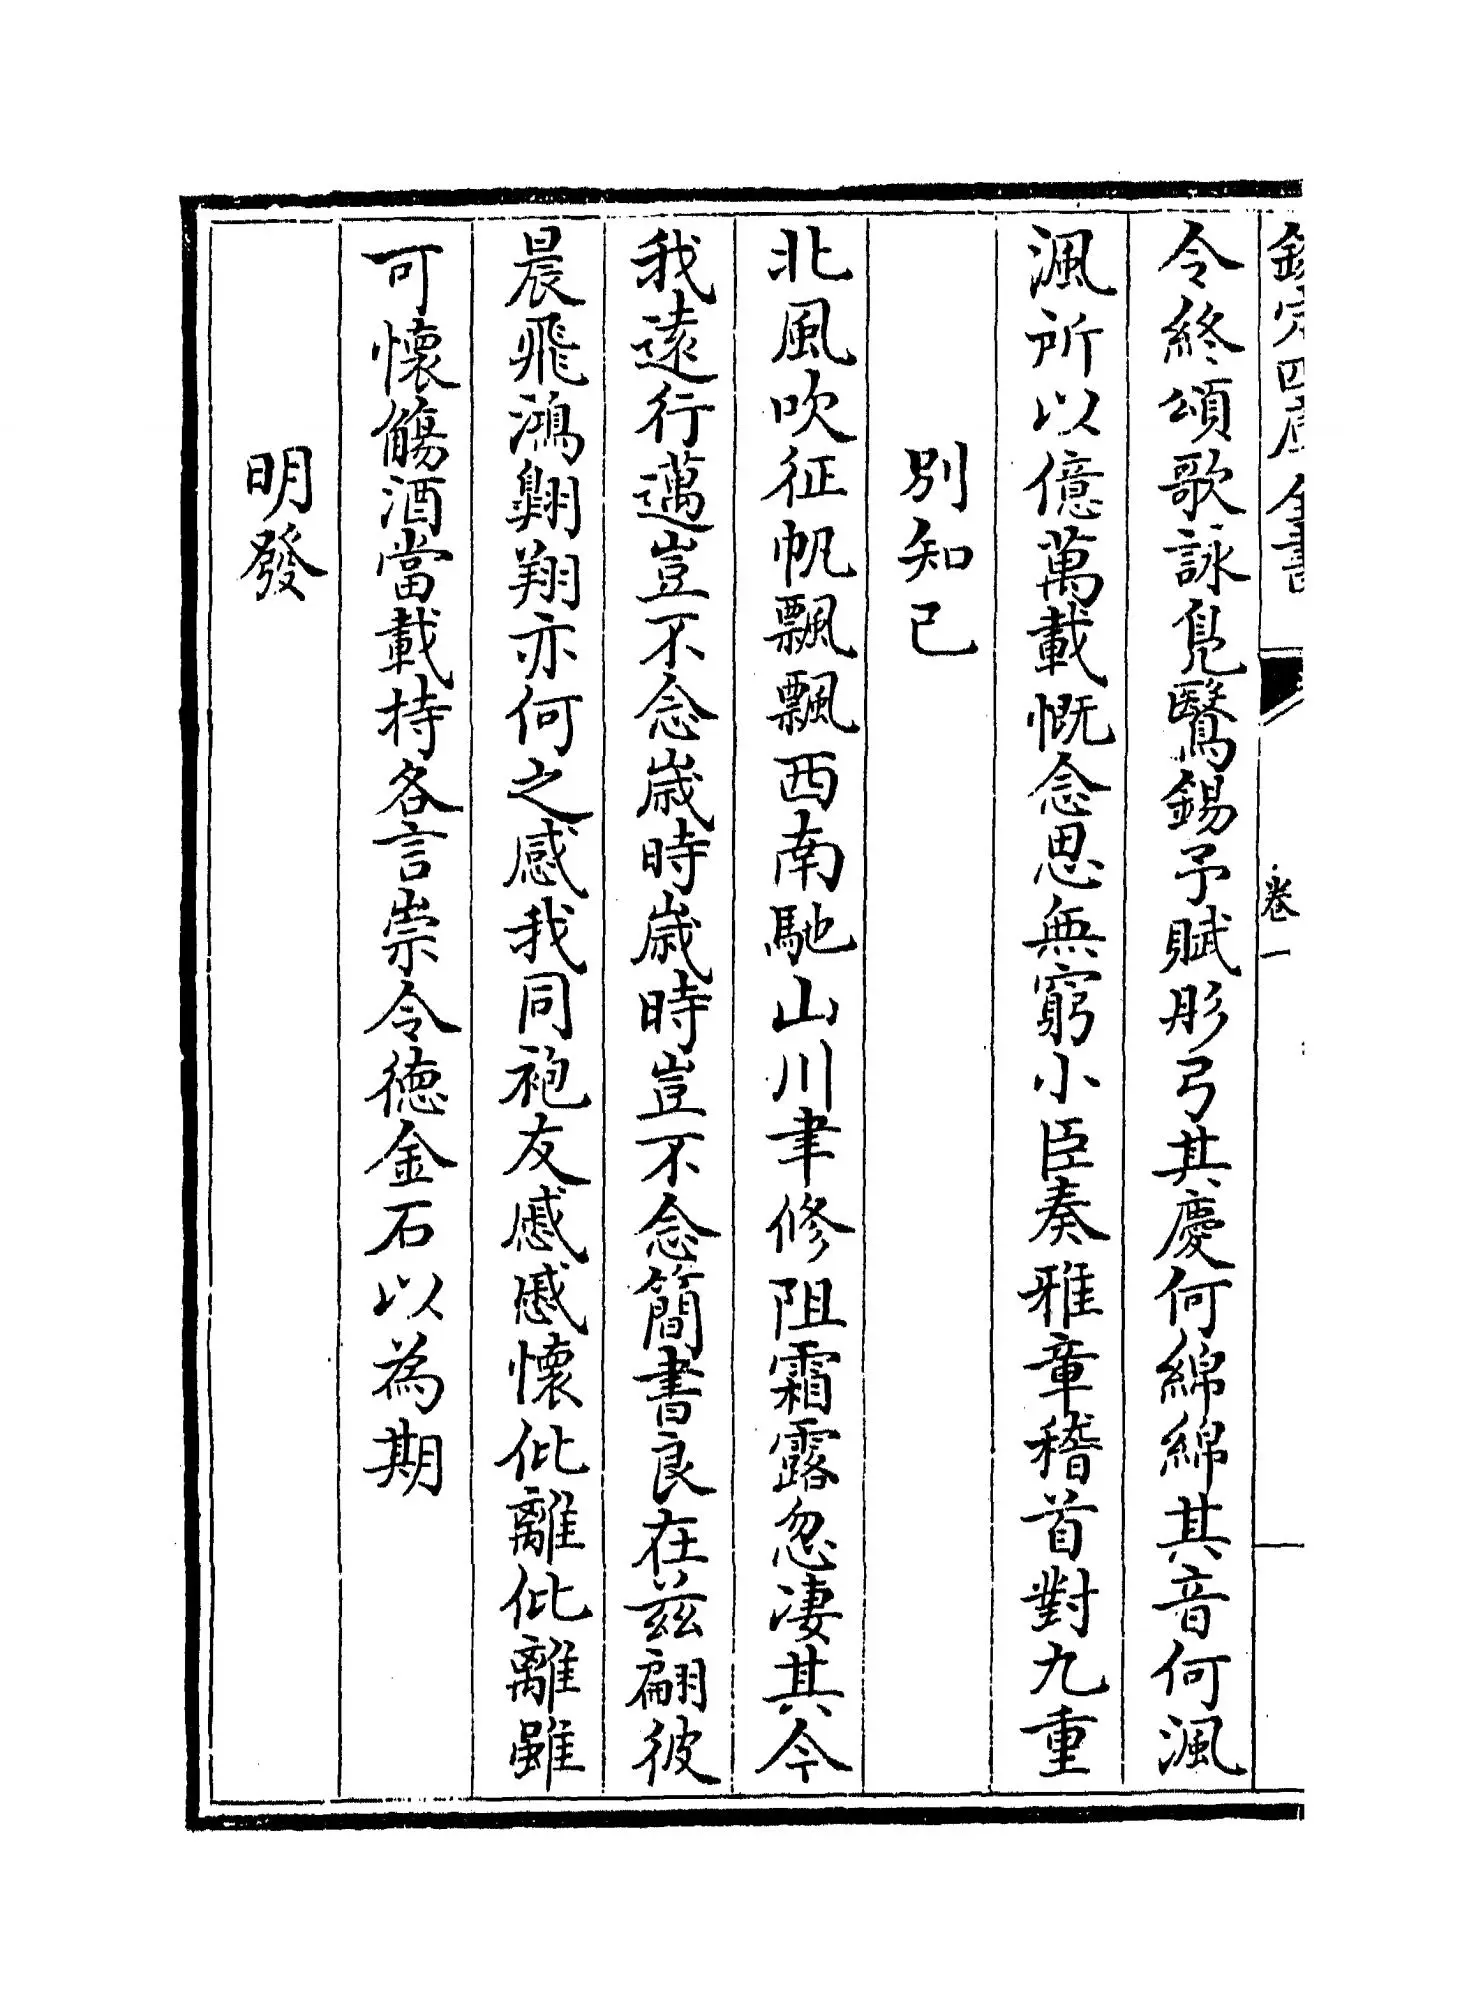 欽定四庫全書
卷一
令終頌歌詠鳧鷖錫予賦彤弓其慶何綿綿其音何渢
渢所以億萬載慨念思無窮小臣奏雅章稽首對九重
別知己
北風吹征帆飄飄西南馳山川聿修阻霜露忽凄其今
我遠行邁豈不念歳時歳時豈不念簡書良在兹翩彼
晨飛鴻翺翔亦何之感我同袍友慼慼懷仳離仳離雖
可懷觴酒當載持各言崇令德金石以為期
明發